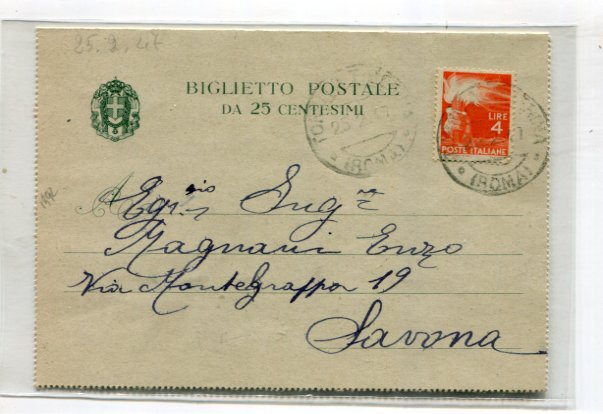 25.2.47
BIGLIETTO POSTALE
DA 25 CENTESIMI
LIRE
4
POSTE ITALIANE
(ROMA)
(ROMA)
A
Egr. gio Ing re
Magnani Enzo
Via Montegrappa 19
Savona